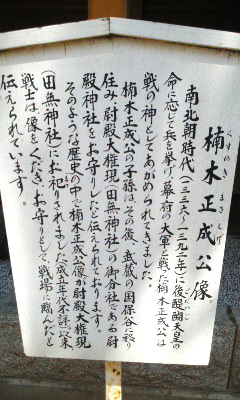 楠木正成公像
くすのき まさしげ
南北朝時代(一三三六〜一三九二年)に後醍醐天皇の
ごだいご
命に応じて兵を挙げ、幕府の大軍と戦った楠木正成公は
戦の神としてあがめられてきました。
楠木正成公の子孫は、その後、武蔵の国保谷に移り
住み尉殿大権現(田無神社)の御分社である尉
殿神社をお守りしたと伝えられております。
そのような歴史の中で楠木正成公像が尉殿大権現
(田無神社)にお祀りされました(成立年代不詳)以来
戦士は、像をくだき、お守りとして、戦場に臨んだと
伝えられています。